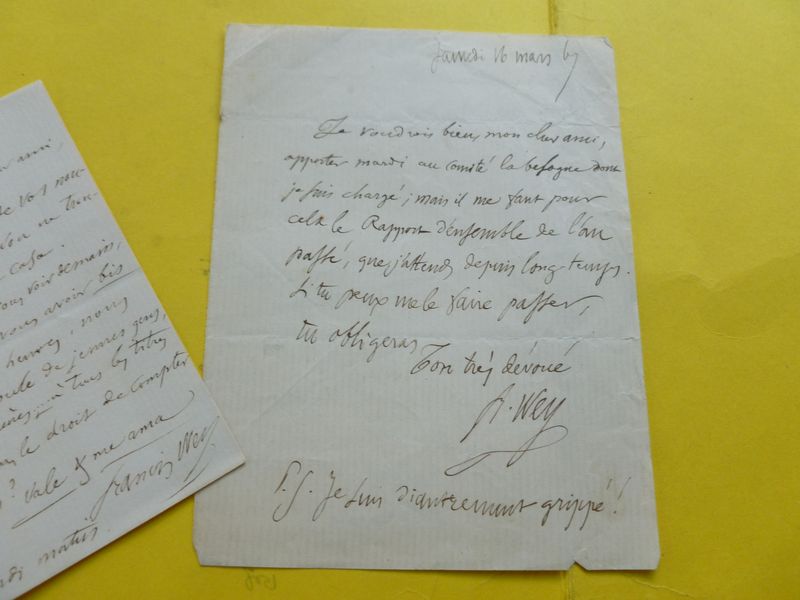 Samedi 16 mars 67
Je voudrois bien, mon cher ami,
apporter mardi au comité la besogne dont
je suis chargé; mais il me faut pour
cela le Rapport d'ensemble de l'an
passé, que j'attends depuis long temps.
Si tu peux me le faire passer,
tu obligeras
Ton très dévoué
F. Wey
P.S. Je suis diantrement grippé!
ami,
de vos nou-
casa.
vous voir demain,
vous avoir bis
heures; nous
de jeunes gens,
tous les titres
le droit de compter
Vale & me ama
Francis Wey